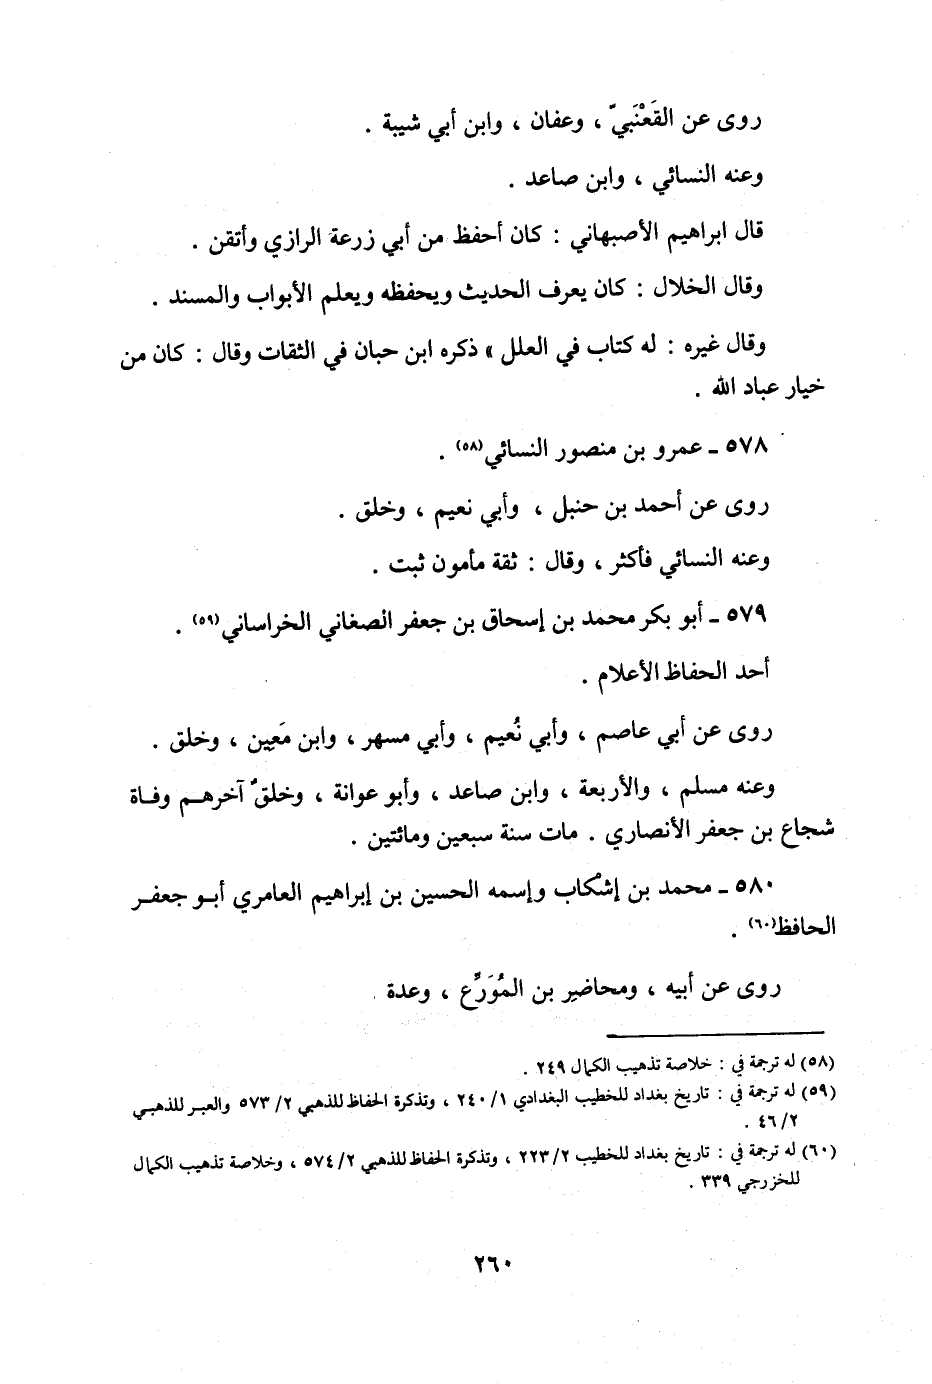 روى عن القَعْنَبيّ ، وعفان ، وابن أبي شيبة .
وعنه النسائي ، وابن صاعد .
قال ابراهيم الأصبهاني : كان أحفظ من أبي زرعة الرازي وأتقن .
وقال الخلال : كان يعرف الحديث ويحفظه ويعلم الأبواب والمسند .
وقال غيره : له كتاب في العلل » ذكره ابن حبان في الثقات وقال : كان من
خيار عباد الله .
٥٧٨ ـ عمرو بن منصور النسائي(٥٨) .
روى عن أحمد بن حنبل ، وأبي نعيم ، وخلق .
وعنه النسائي فأكثر ، وقال : ثقة مأمون ثبت .
٥٧٩ ـ أبو بكر محمد بن إسحاق بن جعفر الصغاني الخراساني(٥٩) .
أحد الحفاظ الأعلام .
روى عن أبي عاصم ، وأبي نُعيم ، وأبي مسهر ، وابن مَعِين ، وخلق .
وعنه مسلم ، والأربعة ، وابن صاعد ، وأبو عوانة ، وخلقٌ آخرهم وفاة
شجاع بن جعفر الأنصاري . مات سنة سبعين ومائتين .
٥٨٠ ـ محمد بن إشكاب وإسمه الحسين بن إبراهيم العامري أبو جعفر
الحافظ(٦٠) .
روى عن أبيه ، ومحاضير بن المُوَرِّع ، وعدة .
(٥٨) له ترجمة في : خلاصة تذهيب الكمال ٢٤٩ .
(٥٩) له ترجمة في : تاريخ بغداد للخطيب البغدادي ١/ ٢٤٠ ، وتذكرة الحفاظ للذهبي ٢/ ٥٧٣ والعبر للذهبي
٢/ ٤٦ .
(٦٠) له ترجمة في : تاريخ بغداد للخطيب ٢/ ٢٢٣ ، وتذكرة الحفاظ للذهبي ٢/ ٥٧٤ ، وخلاصة تذهيب الكمال
للخزرجي ٣٣٩ .
٢٦٠